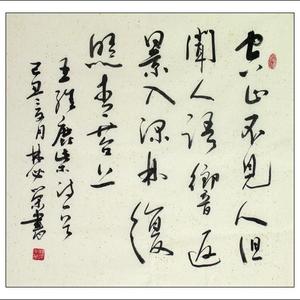 空山不見人但
聞人語響音返
景入深林復
照青苔上
王維鹿柴詩一首
己丑三月林必榮書